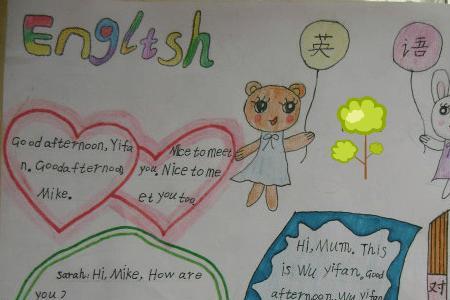 English
英
语
Good afternoon, Yifa
n. Goodafternoon,
Mike.
Nice to meet
you. Nice to me
et you too.
Sarah: Hi, Mike, How are
you?
Hi, Mum. This
is Wu Yifan. Good
afternoon, Wu Yifan
对